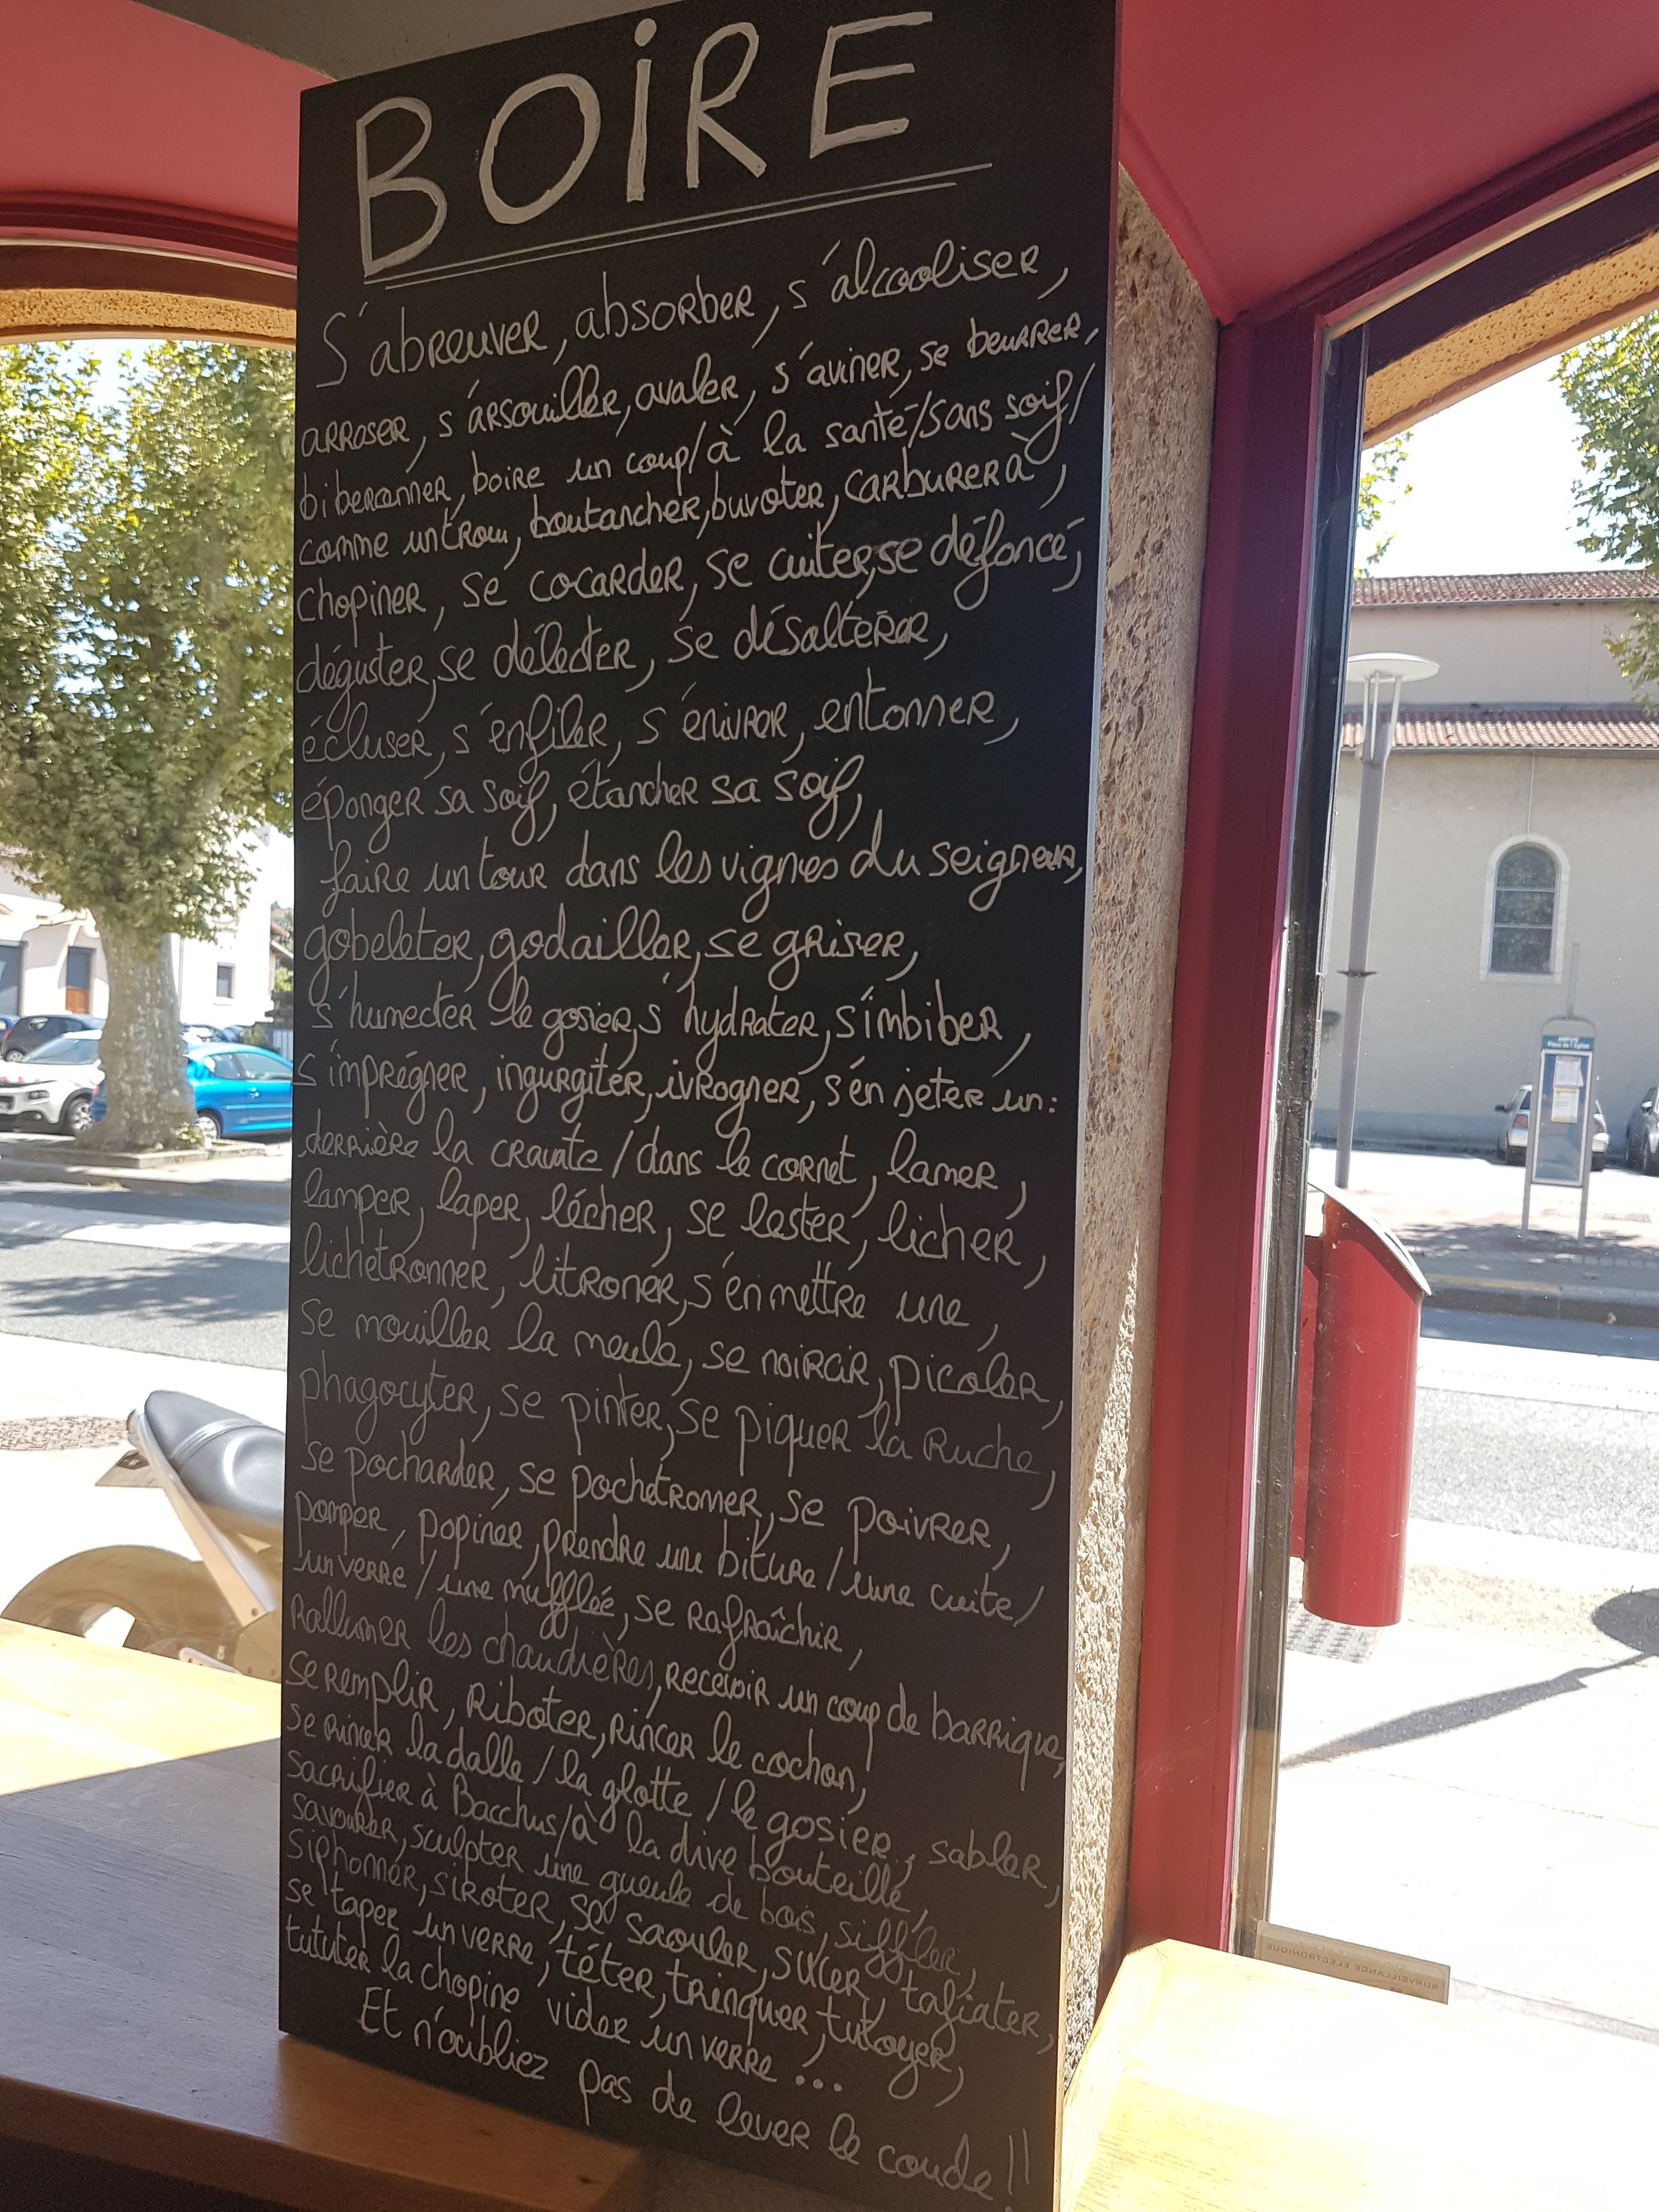 BOIRE
S'abreuver, absorber, s'alcooliser,
arroser, s'arsouiller, avaler, s'aviner, se beurrer,
biberonner, boire un coup/à la santé/sans soif/
comme un trou, boutancher, buvoter, carburer à,
chopiner, se cocarder, se cuiter, se défoncé,
déguster, se délecter, se désaltérer,
écluser, s'enfiler, s'énivrer, entonner,
éponger sa soif, étancher sa soif,
faire un tour dans les vignes du seigneur,
gobeleter, godailler, se griser,
s'humecter le gosier, s'hydrater, s'imbiber,
s'imprégner, ingurgiter, ivrogner, s'en jeter un:
derrière la cravate / dans le cornet, lamer,
lamper, laper, lécher, se lester, licher,
lichetronner, litroner, s'en mettre une,
se mouiller la meule, se noircir, picoler,
phagocyter, se pinter, se piquer la ruche,
se pocharder, se pochetronner, se poivrer,
pomper, popiner, prendre une biture / une cuite/
un verre / une mufflée, se rafraîchir,
rallumer les chaudières, recevoir un coup de barrique,
se remplir, riboter, rincer le cochon,
se rincer la dalle / la glotte / le gosier, sabler,
sacrifier à Bacchus/à la dive bouteille,
savourer, sculpter une gueule de bois, siffler,
siphonner, siroter, se saouler, sucer, tafiater,
se taper un verre, téter, trinquer, tutoyer,
tututer la chopine, vider un verre ...
Et n'oubliez pas de lever le coude !!
AMPUIS
Place de l'Eglise
SURVEILLANCE ELECTRONIQUE